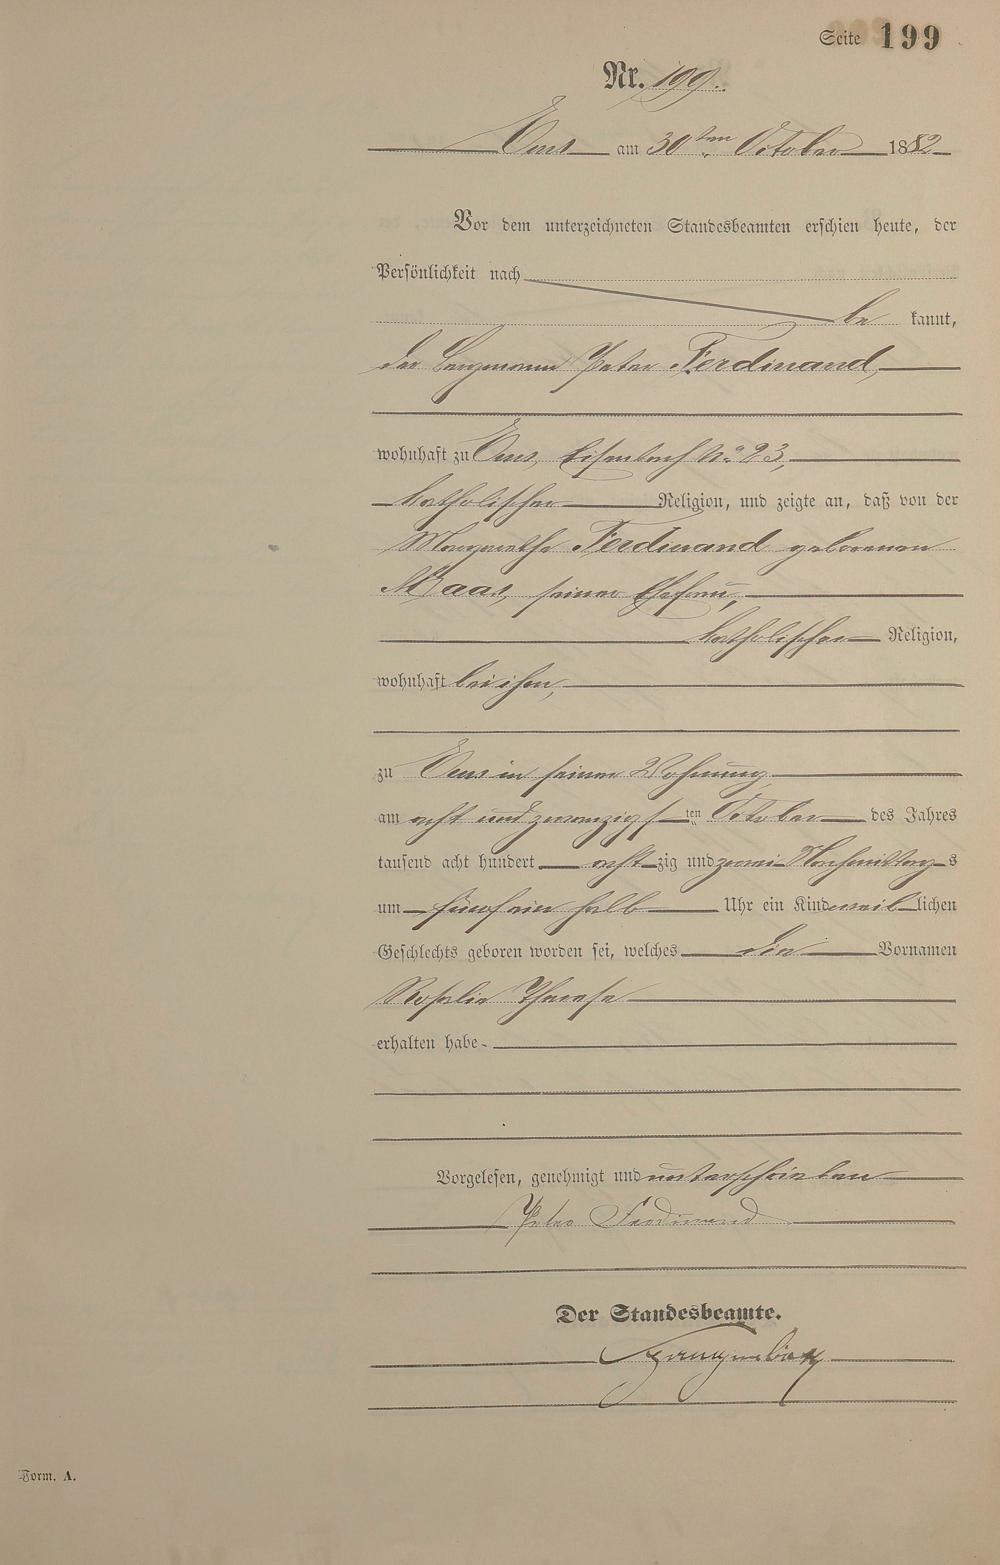 Seite 199
Nr. 199.
Ems am 30ten October 1882
Vor dem unterzeichneten Standesbeamten erschien heute, der
Persönlichkeit nach
be kannt,
der Bergmann Peter Ferdinand,
wohnhaft zu Ems, Eisenbach No 93,
katholischer Religion, und zeigte an, daß von der
Margarethe Ferdinand geborenen
Maas, seiner Ehefrau,
katholischer Religion,
wohnhaft bei ihm,
zu Ems in seiner Wohnung
am acht und zwanzigsten October des Jahres
tausend acht hundert achtzig und zwei Nachmittags
um fünf ein halb Uhr ein Kind weiblichen
Geschlechts geboren worden sei, welches die Vornamen
Rosalie Therese
erhalten habe.
Vorgelesen, genehmigt und unterschrieben
Peter Ferdinand
Der Standesbeamte.
Form. A.